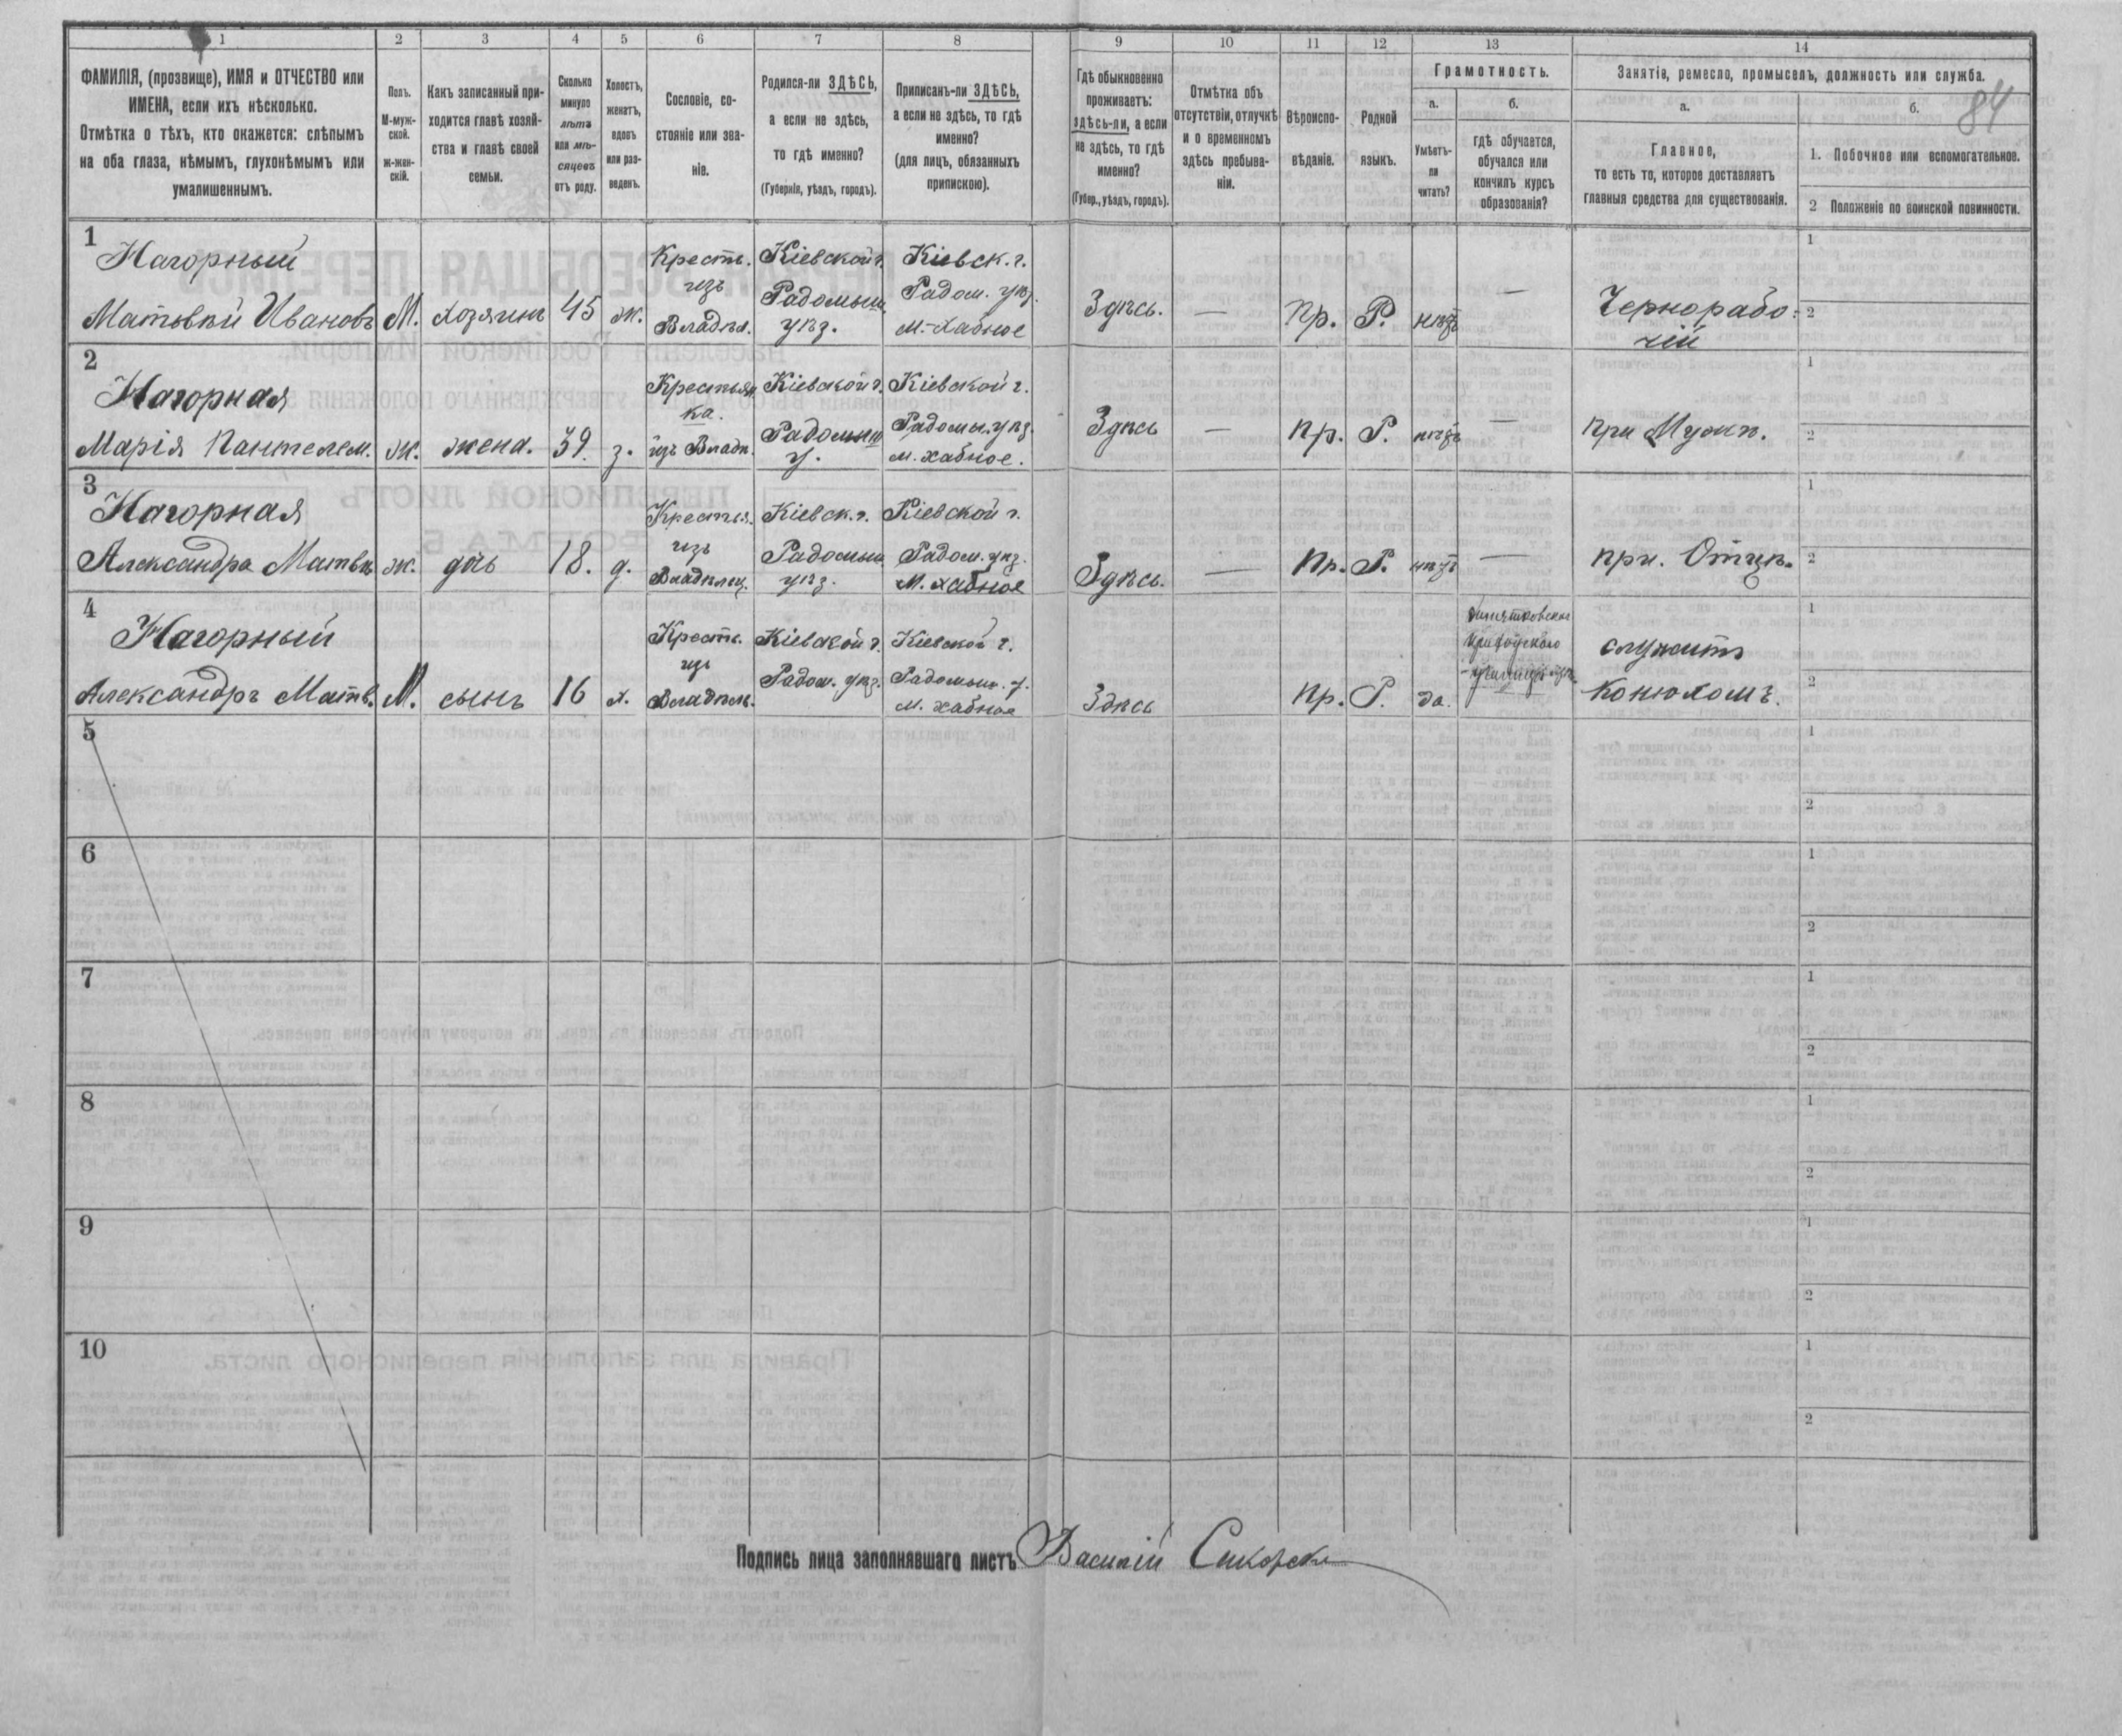 1 2 3 4 5 6 7 8 9 10 11 12 13 14
ФАМИЛІЯ, (прозвище), ИМЯ и ОТЧЕСТВО или
ИМЕНА, если ихъ нѣсколько.
Отмѣтка о тѣхъ, кто окажется: слѣпымъ
на оба глаза, нѣмымъ, глухонѣмымъ или
умалишеннымъ.
Полъ.
М-муж-
ской.
ж-жен-
скій.
Какъ записанный при-
ходится главѣ хозяй-
ства и главѣ своей
семьи.
Сколько
минуло
лѣтъ
или мѣ-
сяцевъ
отъ роду.
Холостъ,
женатъ,
вдовъ
или раз-
веденъ.
Сословіе, со-
стояніе или зва-
ніе.
Родился-ли ЗДѢСЬ,
а если не здѣсь,
то гдѣ именно?
(Губернія, уѣздъ, городъ).
Приписанъ-ли ЗДѢСЬ,
а если не здѣсь, то гдѣ
именно?
(для лицъ, обязанныхъ
припискою).
Гдѣ обыкновенно
проживаетъ:
здѣсь-ли, а если
не здѣсь, то гдѣ
именно?
(Губер., уѣздъ, городъ).
Отмѣтка объ
отсутствіи, отлучкѣ
и о временномъ
здѣсь пребыва-
ніи.
Вѣроиспо-
вѣданіе.
Родной
языкъ.
Грамотность.
а.
Умѣетъ-
ли
читать?
б.
гдѣ обучается,
обучался или
кончилъ курсъ
образованія?
Занятіе, ремесло, промыселъ, должность или служба.
а.
Главное,
то есть то, которое доставляетъ
главныя средства для существованія.
б.
84
1. Побочное или вспомогательное.
2 Положеніе по воинской повинности.
1
Нагорный
Матвѣй Ивановъ
М.
хозяинъ
45
ж.
Кресть.
изъ
Владѣл.
Кіевской г.
Радомыш.
уѣз.
Кіевск. г.
Радом. уѣз.
м. Хабное
Здѣсь.
—
Пр.
Р.
нѣтъ
—
Чернорабо-
чій
1
2
2
Нагорная
Марія Пантелем.
ж.
жена.
39
з.
Крестьян
ка.
изъ Владѣ.
Кіевской г.
Радомыш
у.
Кіевской г.
Радомы. уѣз.
м. Хабное.
Здѣсь
—
Пр.
Р.
нѣтъ
—
при Мужѣ.
1
2
3
Нагорная
Александра Матвѣ
ж.
дочь
18.
д.
Крестья.
изъ
Владѣлец.
Кіевск. г.
Радомыш
уѣз.
Кіевской г.
Радом. уѣз.
м. Хабное
Здѣсь.
—
Пр.
Р.
нѣтъ
—
при. Отцѣ.
1
2
4
Нагорный
Александръ Матв.
М.
сынъ
16
х.
Кресть.
изъ
Владѣль.
Кіевской г.
Радом. уѣз.
Кіевской г.
Радомыш. у.
м. Хабное
Здѣсь
Пр.
Р.
да.
служитъ
Конюхомъ.
1
2
5
1
2
6
1
2
7
1
2
8
1
2
9
1
2
10
1
2
Подпись лица заполнявшаго листъ Василій